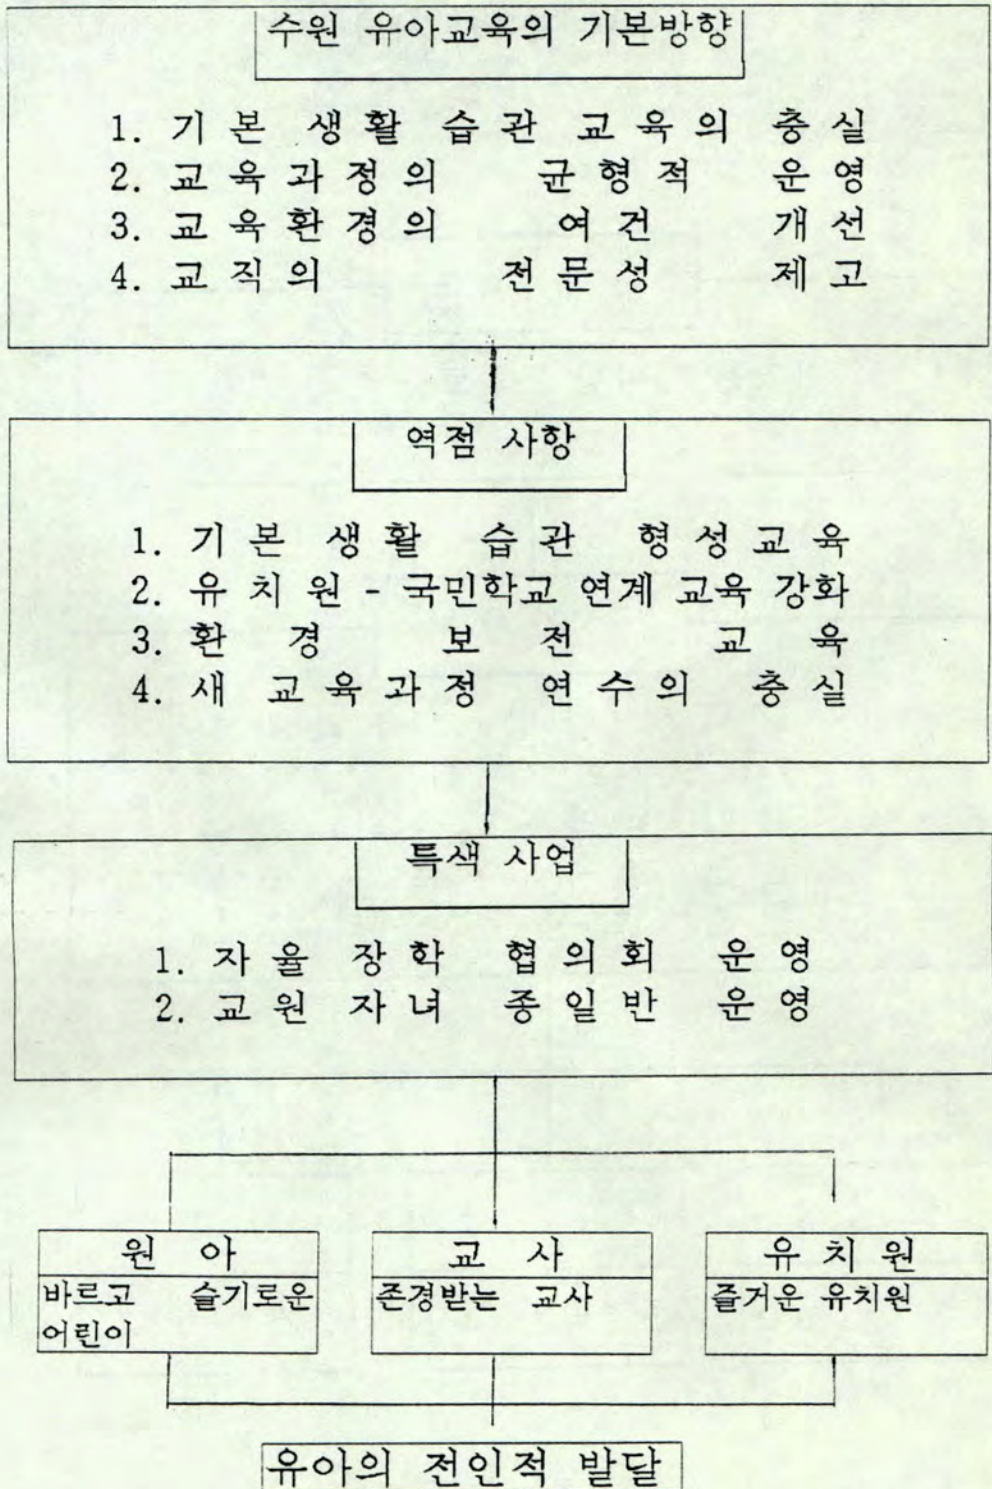 수원 유아교육의 기본방향
1. 기본 생활 습관 교육의 충실
2. 교육과정의 균형적 운영
3. 교육환경의 여건 개선
4. 교직의 전문성 제고
역점 사항
1. 기본 생활 습관 형성교육
2. 유치원 - 국민학교 연계 교육 강화
3. 환경 보전 교육
4. 새 교육과정 연수의 충실
특색 사업
1. 자율 장학 협의회 운영
2. 교원 자녀 종일반 운영
원아
바르고 슬기로운
어린이
교사
존경받는 교사
유치원
즐거운 유치원
유아의 전인적 발달